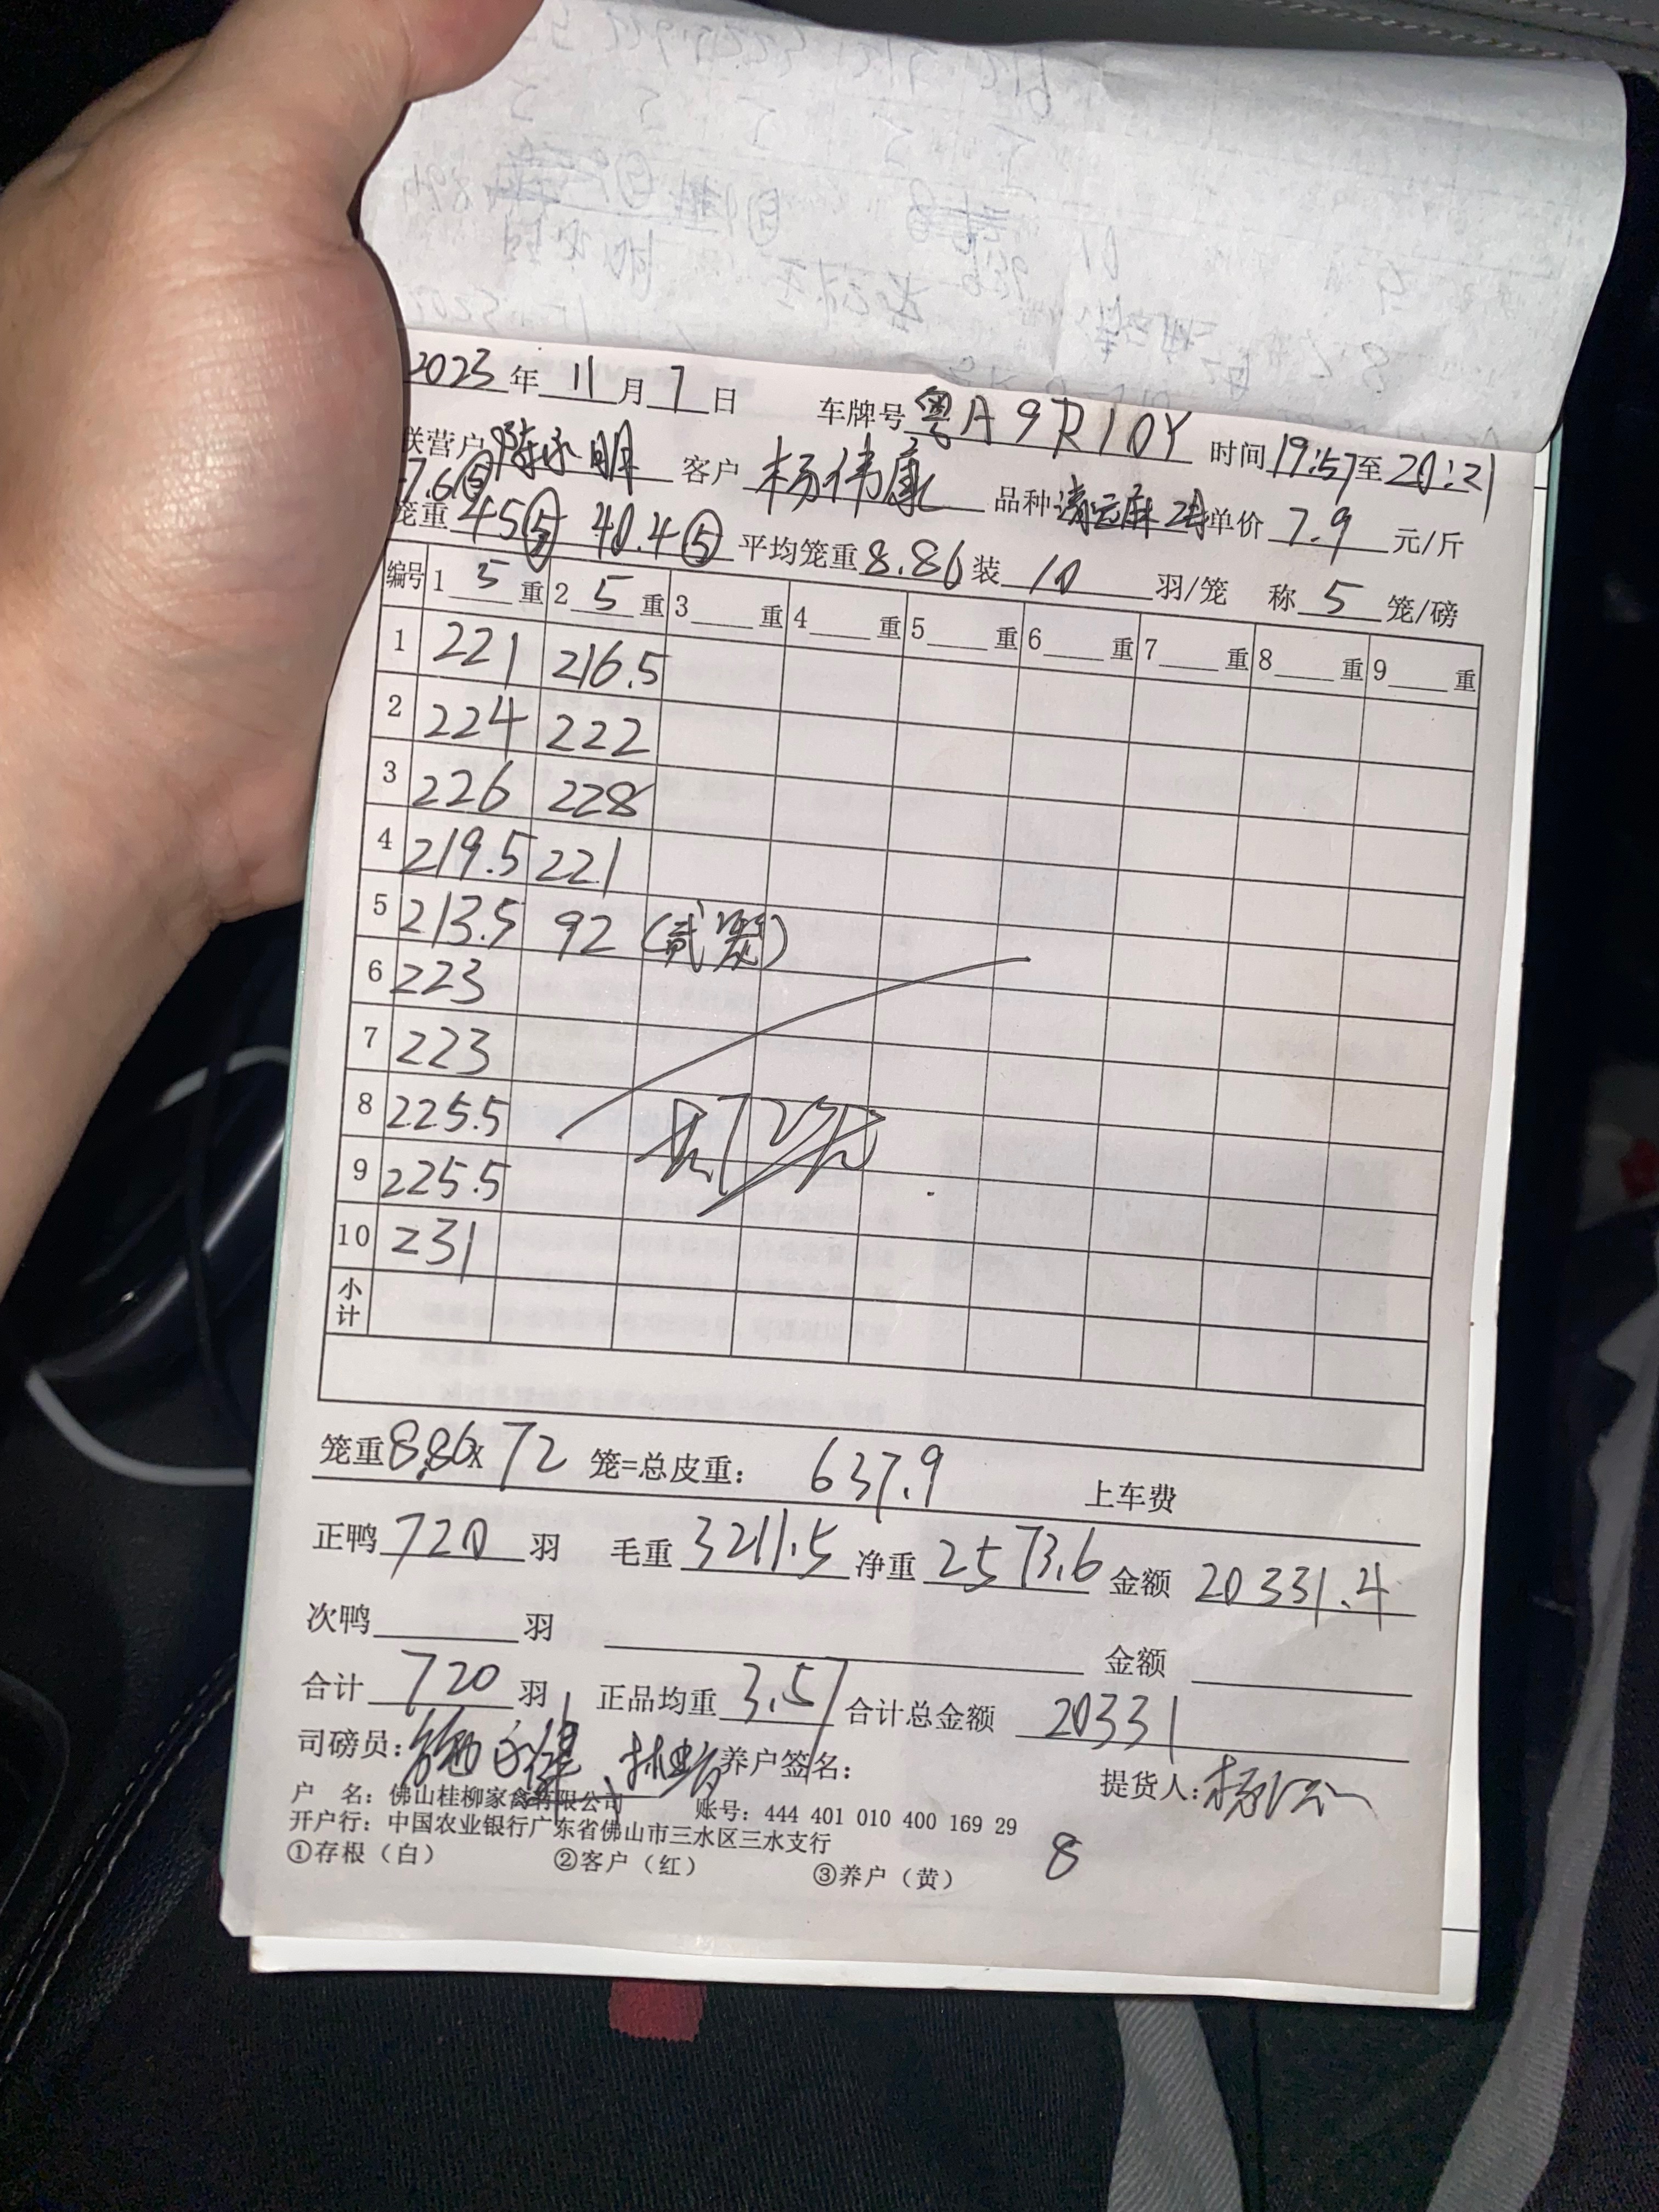 2023年11月7日 车牌号粤A9R10Y 时间19:57至20:21
联营户陈永明 客户杨伟康 品种清远麻 单价7.9元/斤
47.6⑤
笼重45⑤ 40.4⑤ 平均笼重8.86装10羽/笼 称5笼/磅
编号 1 5 重 2 5 重 3 重 4 重 5 重 6 重 7 重 8 重 9 重
1 221 216.5
2 224 222
3 226 228
4 219.5 221
5 213.5 92 (贰笼)
6 223
7 223
8 225.5
9 225.5
10 231
小计
笼重8.86x72笼=总皮重: 637.9 上车费
正鸭720羽 毛重3211.5 净重2573.6 金额20331.4
次鸭 羽 金额
合计720羽 正品均重3.57 合计总金额20331
司磅员: 养户签名: 提货人:
户 名: 佛山桂柳家禽有限公司 账号: 444 401 010 400 169 29
开户行: 中国农业银行广东省佛山市三水区三水支行
①存根(白) ②客户(红) ③养户(黄) 8